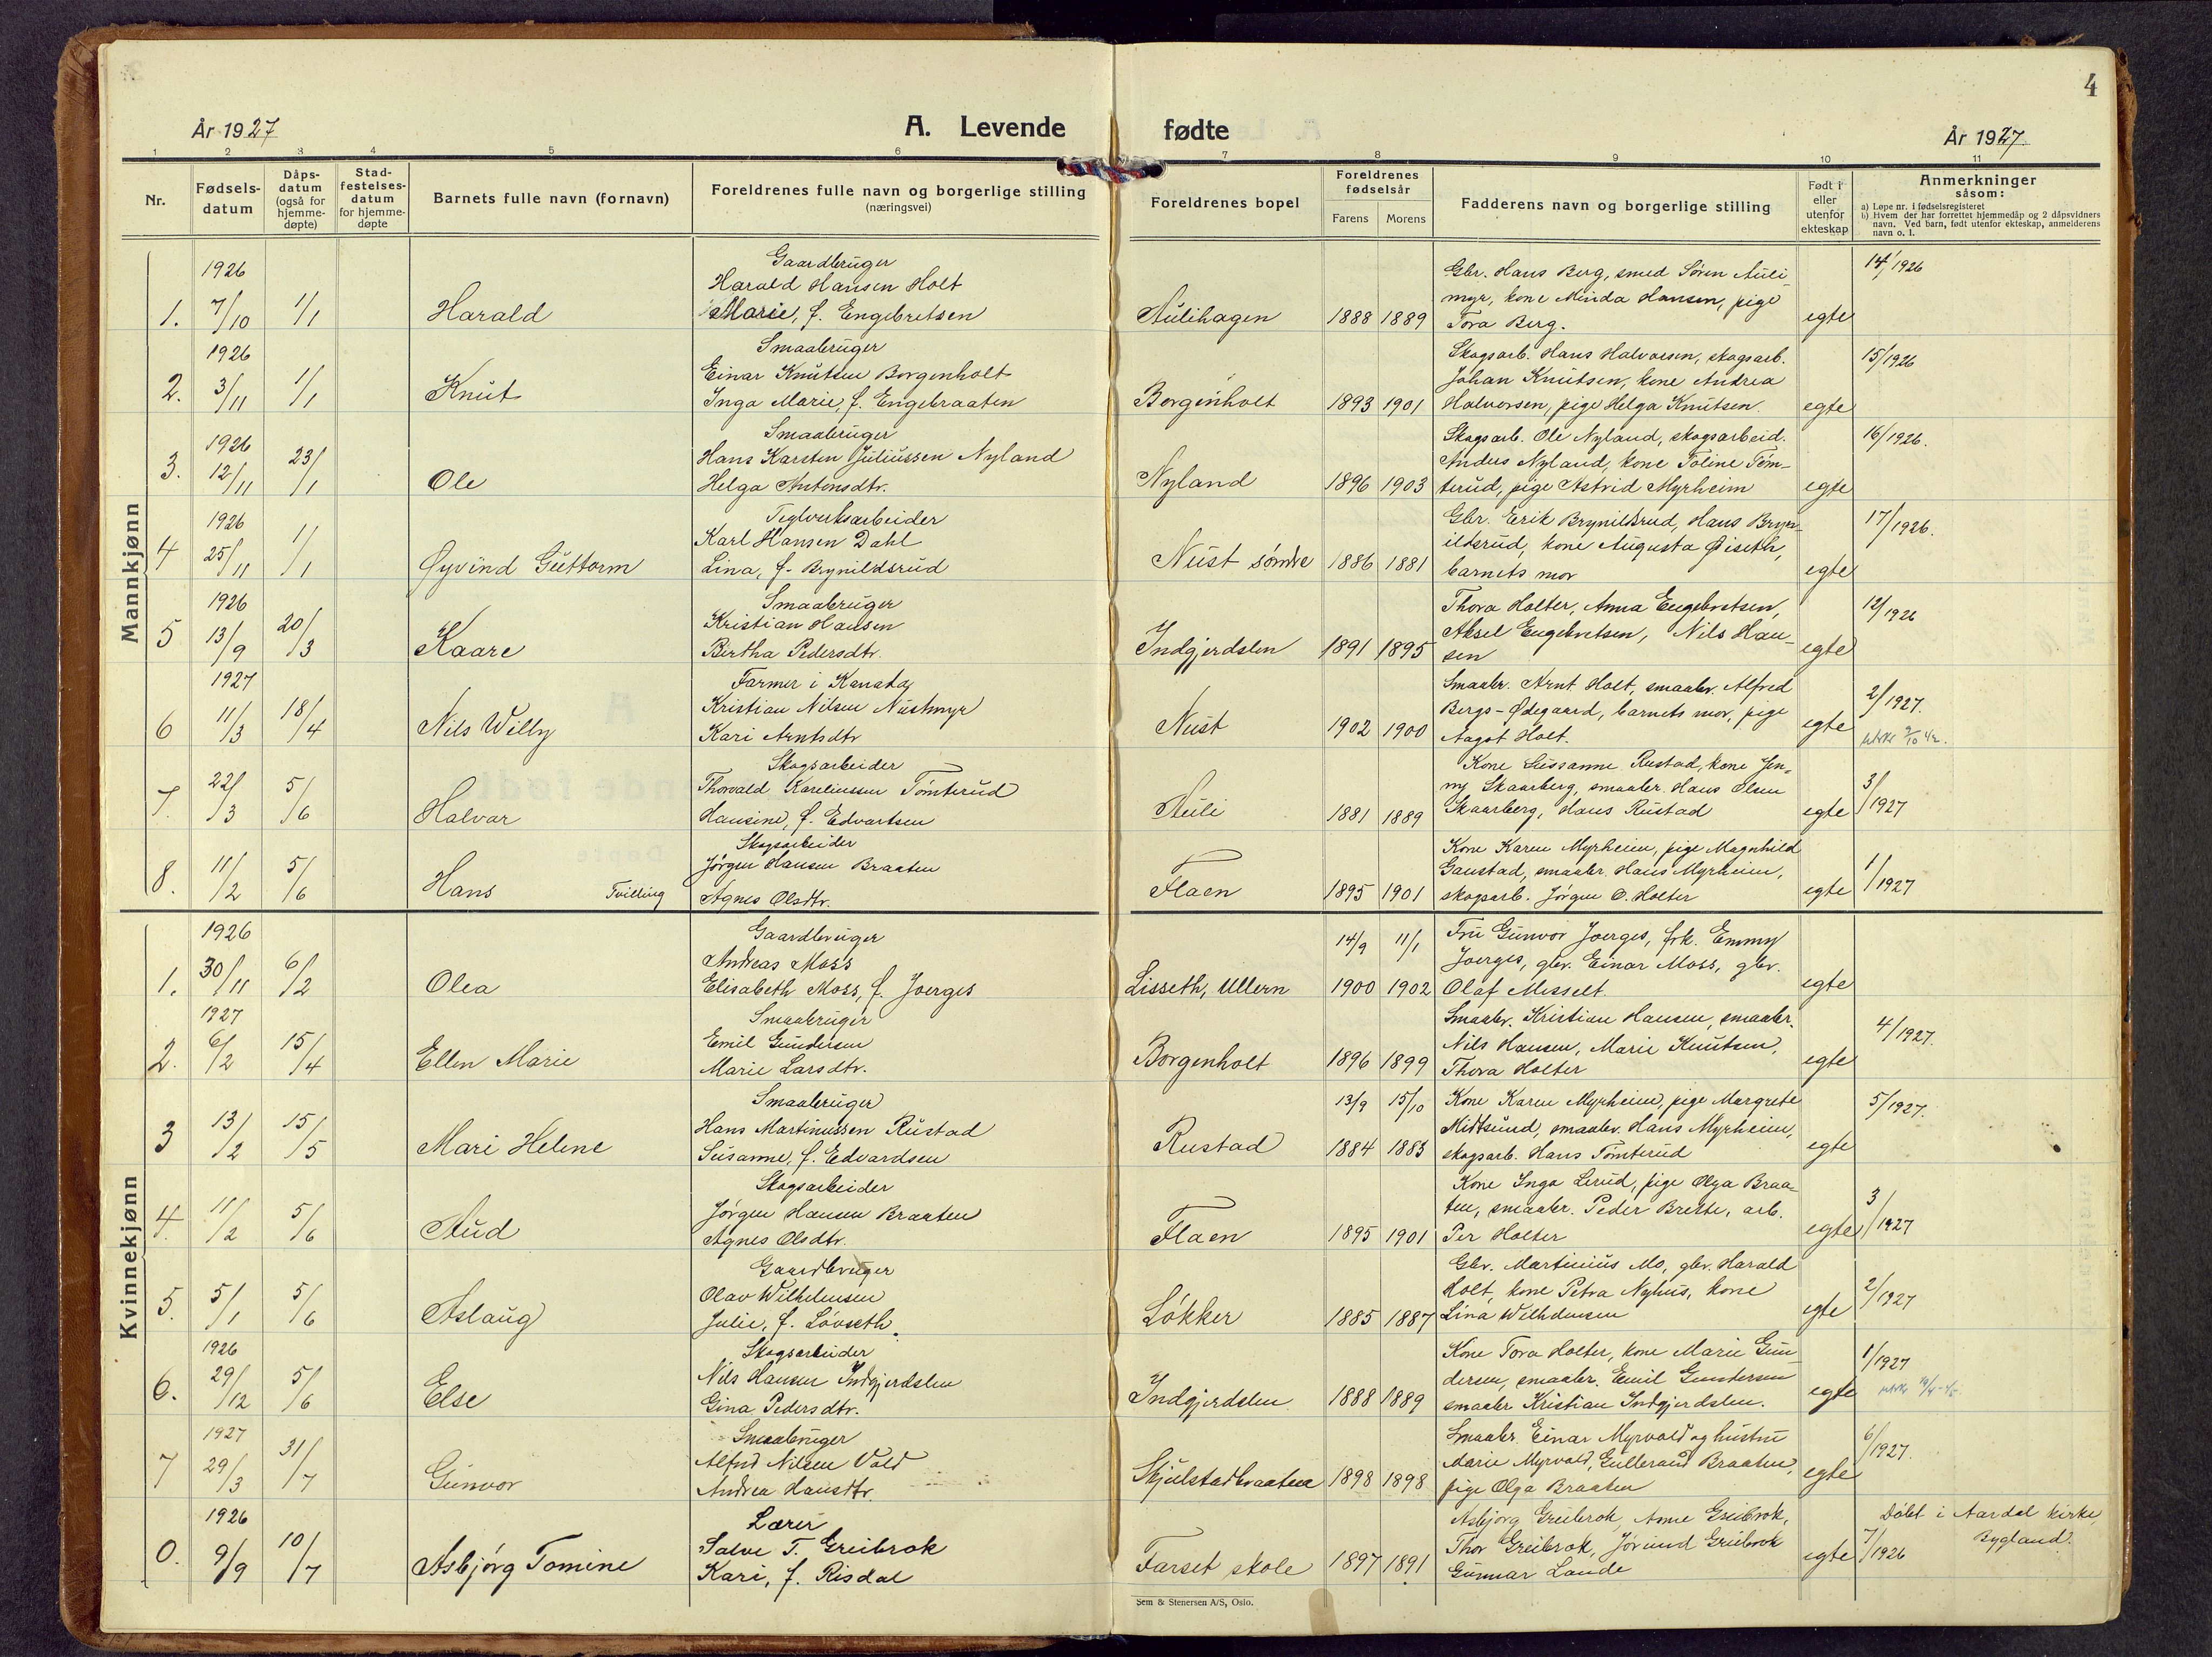 4
År 1927
A. Levende fødte
År 1927.
1 2 3 4 5 6 7 8 9 10 11
Nr.
Fødsels-
datum
Dåps-
datum
(også for
hjemme-
døpte)
Stad-
festelses-
datum
for hjemme-
døpte
Barnets fulle navn (fornavn)
Foreldrenes fulle navn og borgerlige stilling
(næringsvei)
Foreldrenes bopel
Foreldrenes
fødselsår
Farens Morens
Fadderens navn og borgerlige stilling
Født i
eller
utenfor
ekteskap
Anmerkninger
såsom:
a) Løpe nr. i fødselsregisteret
b) Hvem der har forrettet hjemmedåp og 2 dåpsvidners
navn. Ved barn, født utenfor ekteskap, anmelderens
navn o. l.
Mannkjønn
1926
1. 7/10 1/1 Harald
Gaardbruger
Harald Hansen Holt
Marie, f. Engebretsen
Aulihagen 1888 1889
Gbr. Hans Berg, smed Søren Auli-
myr, kone Minda Hansen, pige
Tora Berg.
egte 14/1926
1926
2. 3/11 1/1 Knut
Smaabruger
Einar Knutsen Borgenholt
Inga Marie, f. Engebraaten
Borgenholt 1893 1901
Skogsarb. Hans Halvorsen, skogsarb.
Johan Knutsen, kone Andrea
Halvorsen, pige Helga Knutsen.
egte 15/1926
1926
3. 12/11 23/1 Ole
Smaabruger
Hans Karsten Juliussen Nyland
Helga Antonsdtr.
Nyland 1896 1903
Skogsarb. Ole Nyland, skogsarbeid.
Anders Nyland, kone Toline Tøm-
terud, pige Astrid Myrheim
egte 16/1926.
1926
4 25/11 1/1 Øyvind Guttorm
Teglverksarbeider
Karl Hansen Dahl
Lina, f. Brynildsrud
Nust søndre 1886 1881
Gbr. Erik Brynildsrud, Hans Bryn-
ildsrud, kone Augusta Øiseth,
barnets mor
egte 17/1926.
1926
5 13/9 20/3 Kaare
Smaabruger
Kristian Hansen
Birtha Pedersdtr.
Indgjerdslen 1891 1895
Thora Holter, Anna Engebretsen,
Aksel Engebretsen, Nils Han-
sen
egte 12/1926
1927
6 11/3 18/4 Nils Willy
Farmer i Kanada
Kristian Nilsen Nustmyr
Kari Arntsdtr
Nust 1902 1900
Smaabr. Arnt Holt, smaabr. Alfred
Bergs-Ødegaard, barnets mor, pige
Aagot Holt.
egte 2/1927.
7. 22/3 5/6 Halvar
Skogsarbeider
Thorvald Kareliussen Tømterud
Hansine, f. Edvartsen
Auli 1881 1889
Kone Sussanne Rustad, kone Jen-
ny Skaarberg, smaabr. Hans Olsen
Skaarberg, Hans Rustad
egte 3/1927
8. 11/2 5/6 Hans Tvilling
Skogsarbeider
Jørgen Hansen Braaten
Agnes Olsdtr.
Flaen 1895 1901
Kone Karen Myrheim, pige Magnhild
Gaustad, smaabr. Hans Myrheim,
skogsarb. Jørgen O. Holter
egte 1/1927
Kvinnekjønn
1926
1. 30/11 6/2 Olea
Gaardbruger
Andreas Moss
Elisabeth Moss, f. Joerges
Lisseth, Ullern 14/9 1900 11/1 1902
Fru Gunvor Joerges, frk. Emmy
Joerges, gbr. Einar Moss, gbr.
Olaf Misselt.
egte
1927
2. 6/2 15/4 Ellen Marie
Smaabruger
Emil Gundersen
Marie Larsdtr.
Borgenholt 1896 1899
Smaabr. Kristian Hansen, smaabr.
Nils Hansen, Marie Knutsen,
Thora Holter
egte 4/1927.
3 13/2 15/5 Mari Helene
Smaabruger
Hans Martinussen Rustad
Susanne, f. Edvardsen
Rustad 13/9 1884 15/10 1883
Kone Karen Myrheim, pige Margrete
Midtsund, smaabr. Hans Myrheim,
skogsarb. Hans Tømterud
egte 5/1927.
4. 11/2 5/6 Aud
Skogsarbeider
Jørgen Hansen Braaten
Agnes Olsdtr.
Flaen 1895 1901
Kone Inga Lerud, pige Olga Braa-
ten, smaabr. Peder Brekke, arb.
Per Holter
egte 3/1927
5. 5/1 5/6 Aslaug
Gaardbruger
Olav Wilhelmsen
Julie, f. Løvseth.
Løkker 1885 1887
Gbr. Martinius Mo, gbr. Harald
Holt, kone Petra Nyhus, kone
Lina Wilhelmsen
egte 2/1927
1926
6. 29/12 5/6 Else
Skogsarbeider
Nils Hansen Indgjerdslen
Gina Pedersdtr.
Indgjerdslen 1888 1889
Kone Tora Holter, kone Marie Gun-
dersen, smaabr. Emil Gundersen
smaabr Kristian Indgjerdslen.
egte 1/1927
1927
7 29/3 31/7 Gunvor
Smaabruger
Alfred Nilsen Vold
Andrea Hansdtr.
Skjulstadbraaten 1898 1898
Smaabr. Einar Myrvold og hustru
Marie Myrvold, Gulleraud Braaten,
pige Olga Braaten
egte 6/1927.
1926
0. 9/9 10/7 Asbjørg Tomine
Lærer
Salve T. Greibrok
Kari, f. Risdal
Farset skole 1897 1891
Asbjørg Greibrok, Anne Greibrok,
Thor Greibrok, Jørund Greibrok
Gunnar Lande
egte 7/1926
Døbt i Aardal kirke,
Bygland.
Sem & Stenersen A/S, Oslo.